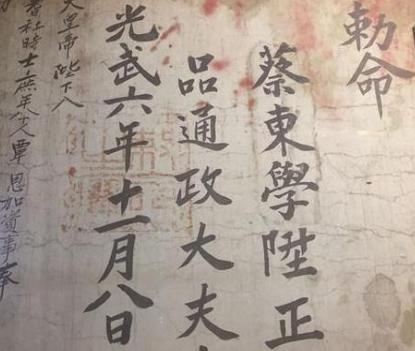 勅命
蔡東學陞正
品通政大夫
光武六年十一月八日
大皇帝 陛下八
耆社時士庶年八十覃 恩加資事奉